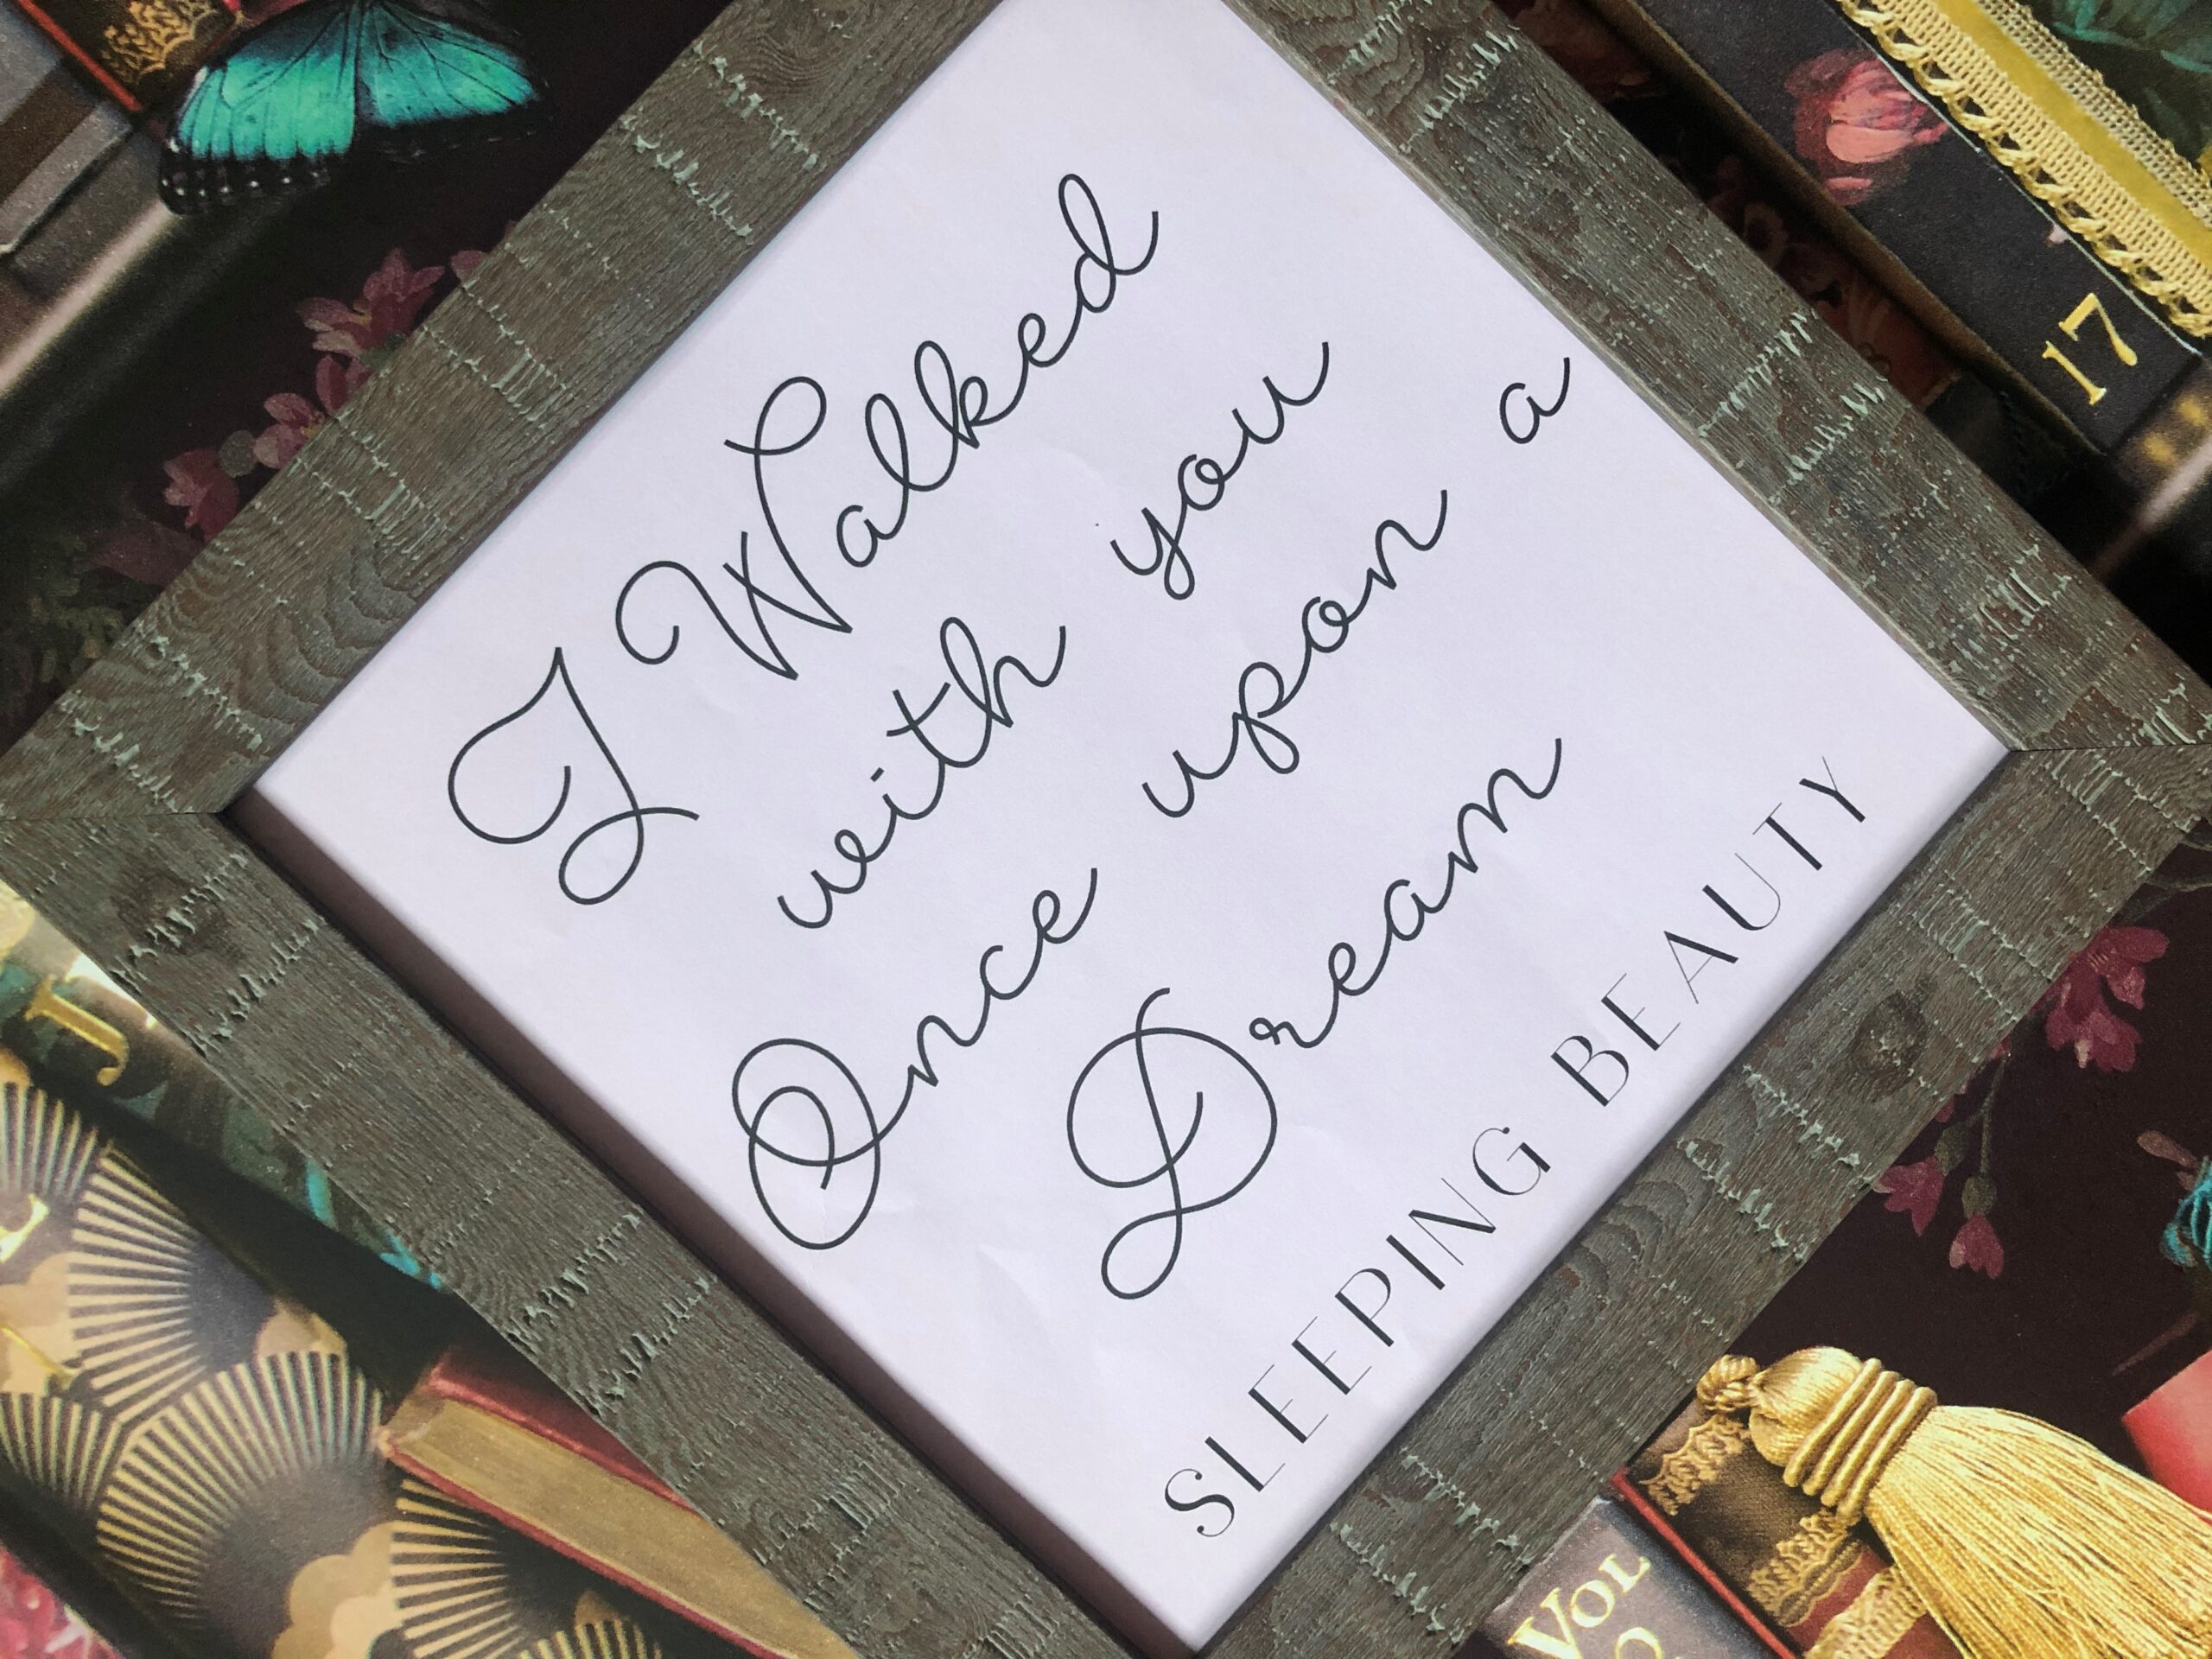 I Walked
with you
Once upon a
Dream
SLEEPING BEAUTY
17
J
VOL